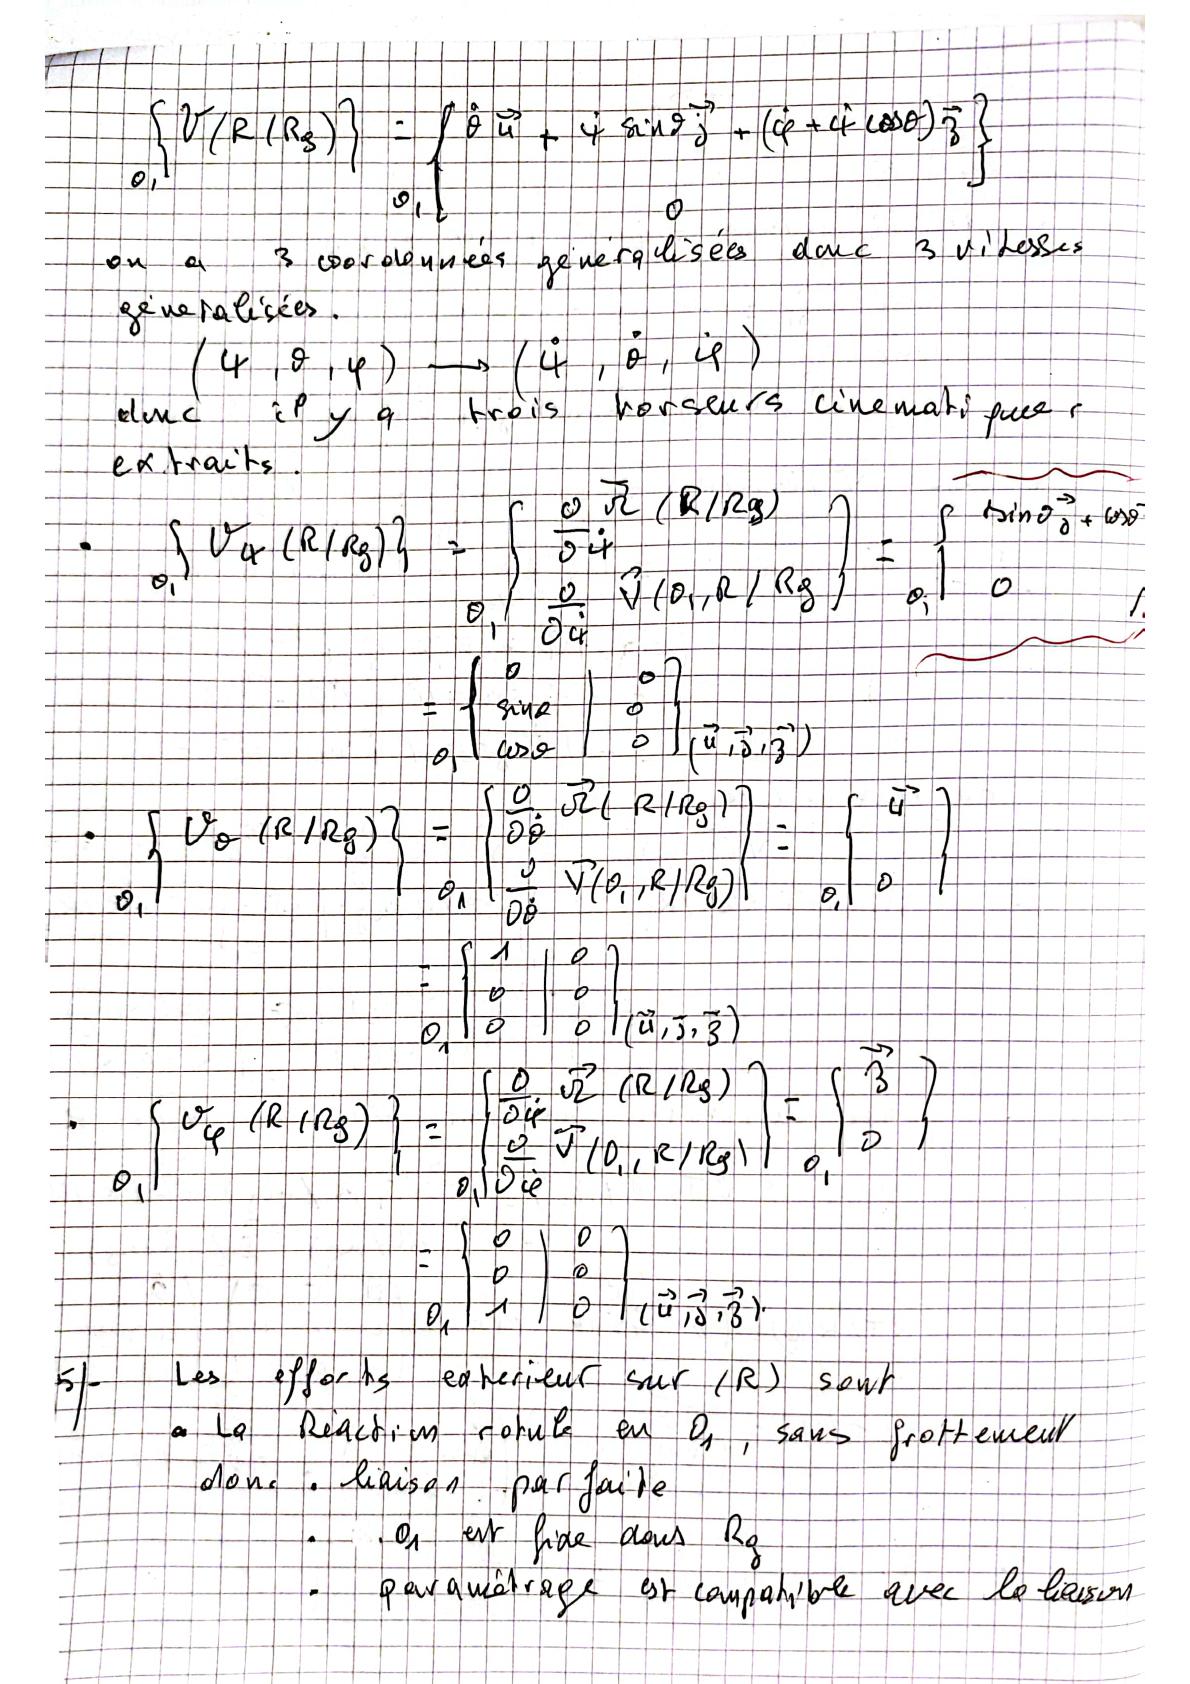 {𝒱(R/Rg)}_{O₁} = _{O₁}{ θ̇ u⃗ + ψ̇ sinθ j⃗ + (φ̇ + ψ̇ cosθ) z⃗
0 }
on a 3 coordonnées généralisées donc 3 vitesses
généralisées.
(ψ, θ, φ) → (ψ̇, θ̇, φ̇)
donc il y a trois torseurs cinematiques
extraits.
• _{O₁}{𝒱ψ (R/Rg)} = _{O₁}{ ∂/∂ψ̇ Ω⃗ (R/Rg) ; ∂/∂ψ̇ V⃗(O₁, R/Rg } = _{O₁}{ sinθ j⃗ + cosθ ; 0
= _{O₁}{ 0 | 0 ; sinθ | 0 ; cosθ | 0 }(u⃗, j⃗, z⃗)
• _{O₁}{𝒱θ (R/Rg)} = _{O₁}{ ∂/∂θ̇ Ω⃗ (R/Rg) ; ∂/∂θ̇ V⃗(O₁, R/Rg) } = _{O₁}{ u⃗ ; 0 }
= _{O₁}{ 1 | 0 ; 0 | 0 ; 0 | 0 }(u⃗, j⃗, z⃗)
• _{O₁}{𝒱φ (R/Rg)} = _{O₁}{ ∂/∂φ̇ Ω⃗ (R/Rg) ; ∂/∂φ̇ V⃗(O₁, R/Rg) } = _{O₁}{ z⃗ ; 0 }
= _{O₁}{ 0 | 0 ; 0 | 0 ; 1 | 0 }(u⃗, j⃗, z⃗).
5/- Les efforts exterieur sur (R) sont
• La Réaction rotule en O₁, sans frottement
donc . liaison parfaite
. O₁ est fixe dans Rg
. paramétrage est compatible avec la liaison